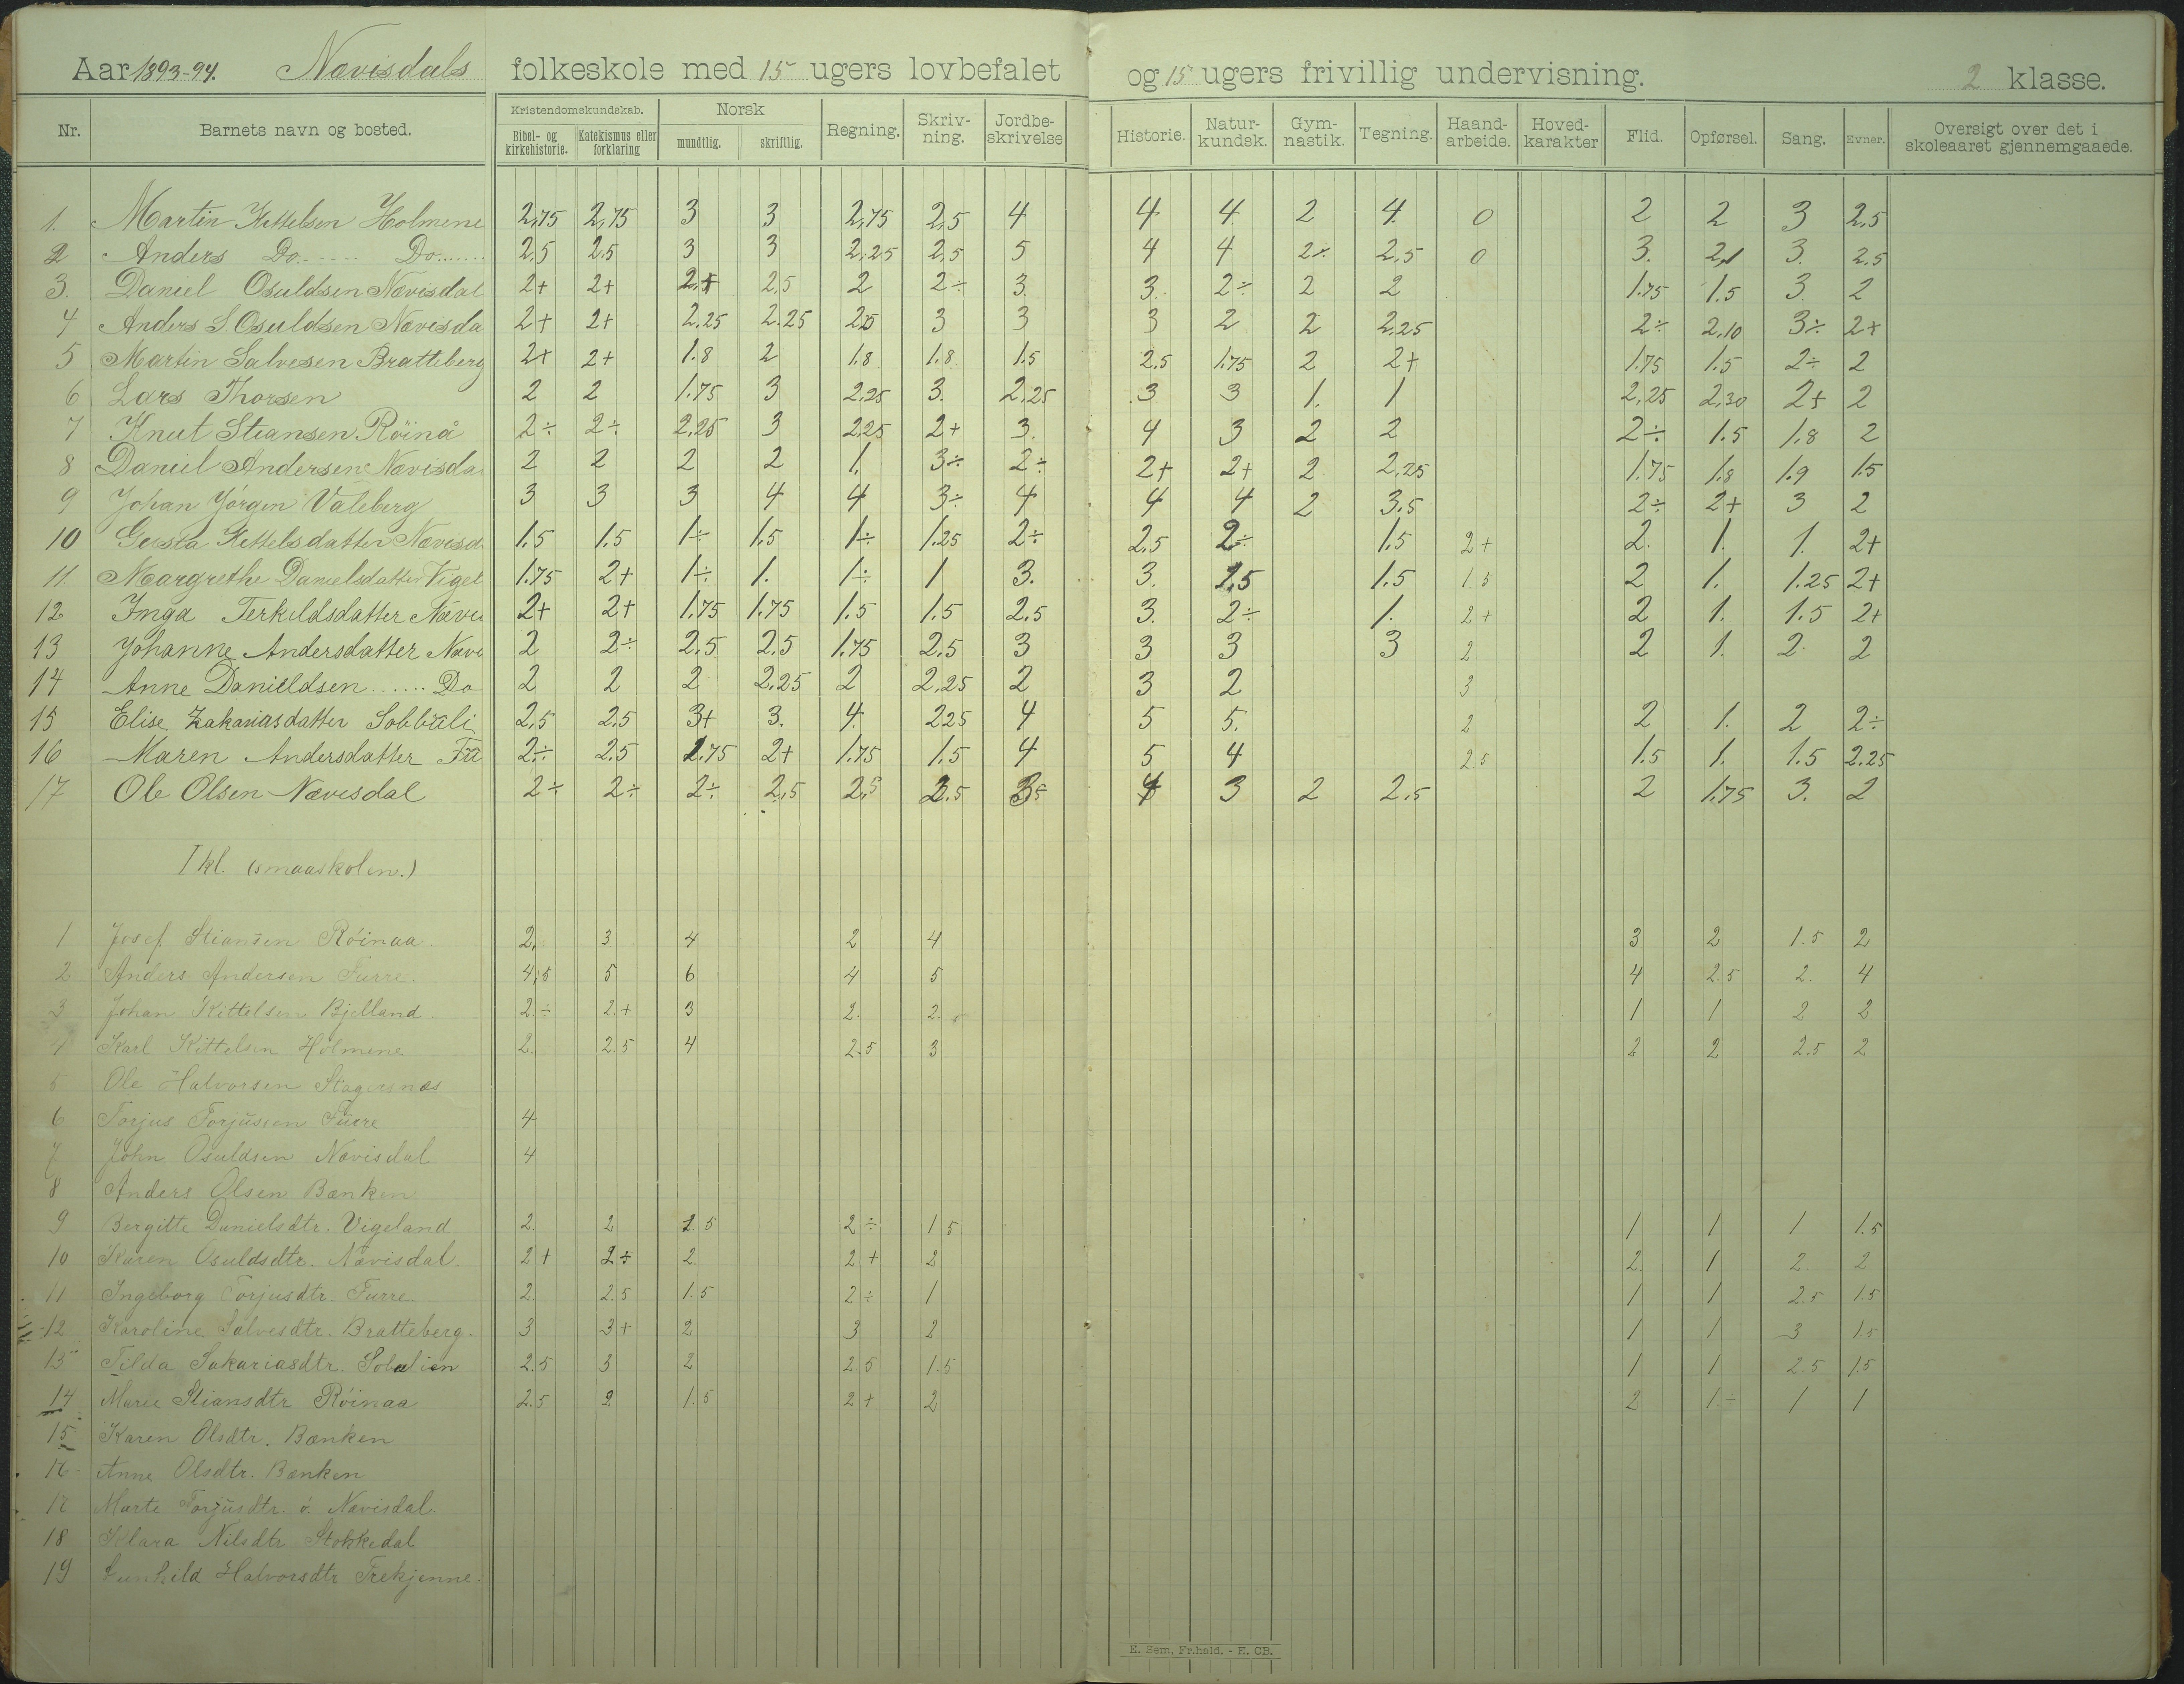 Aar 1893-94. Nævisdals folkeskole med 15 ugers lovbefalet og 15 ugers frivillig undervisning. 2 klasse.
Nr. Barnets navn og bosted. Kristendomskundskab. Norsk Regning. Skriv-ning. Jordbe-skrivelse Historie. Natur-kundsk. Gym-nastik. Tegning. Haand-arbeide. Hoved-karakter Flid. Opførsel. Sang. Evner. Oversigt over det i skoleaaret gjennemgaaede.
Bibel- og kirkehistorie. Katekismus eller forklaring mundtlig. skriftlig.
1. Martin Kettelsen Holmene 2,75 2,75 3 3 2,75 2,5 4 4 4 2 4 0 2 2 3 2,5
2 Anders Do. Do 2,5 2,5 3 3 2,25 2,5 5 4 4 2÷ 2,5 0 3. 2,1 3. 2.5
3. Daniel Osuldsen Nævisdal 2+ 2+ 2,5 2 2÷ 3. 3. 2÷ 2 2 1.75 1.5 3 2
4 Anders S. Osuldsen Nævisda 2+ 2+ 2,25 2.25 2,5 3 3 3 2 2 2,25 2÷ 2,10 3÷ 2+
5 Martin Salvesen Bratteberg 2+ 2+ 1.8 2 1.8 1.8 1.5 2.5 1.75 2 2+ 1.75 1.5 2÷ 2
6 Lars Thorsen 2 2 1.75 3 2,25 3. 2,25 3 3 1. 1 2,25 2,30 2+ 2
7 Knut Stiansen Röinå 2÷ 2÷ 2,25 3 2,25 2+ 3. 4 3 2 2 2÷ 1.5 1.8 2
8 Daniel Andersen Nævisda 2 2 2 2 1. 3÷ 2÷ 2+ 2+ 2 2,25 1.75 1.8 1.9 1.5
9 Johan Jörgen Valeberg 3 3 3 4 4 3÷ 4 4 4 2 3.5 2÷ 2+ 3 2
10 Kettelsdatter Nævisd 1.5 1.5 1÷ 1,5 1÷ 1.25 2÷ 2.5 2÷ 1.5 2+ 2. 1. 1. 2+
11. Margrethe Danielsdatter Vigel 1.75 2+ 1÷ 1. 1÷ 1 3. 3. 2,5 1.5 1.5 2 1. 1.25 2+
12 Inga Terkildsdatter Nævi 2+ 2+ 1.75 1.75 1.5 1.5 2,5 3. 2÷ 1. 2+ 2 1. 1.5 2+
13 Johanne Andersdatter Nævi 2 2÷ 2,5 2,5 1.75 2,5 3 3 3 3 2 2 1. 2 2
14 Anne Danieldsen Do 2 2 2 2,25 2 2,25 2 3 2 3
15 Elise Zakariasdatter Sobbuli 2,5 2,5 3+ 3. 4. 2,25 4 5 5. 2 2 1. 2 2÷
16 Maren Andersdatter Fu 2÷ 2.5 1.75 2+ 1.75 1.5 4 5 4 2.5 1.5 1. 1.5 2.25
17 Ole Olsen Nævisdal 2÷ 2÷ 2÷ 2,5 2,5 2.5 3,5 4 3 2 2.5 2 1.75 3. 2
I kl. (smaaskolen.)
1 Josef Stiansen Röinaa. 2. 3 4 2 4 3 2 1.5 2
2 Anders Andersen Furre. 4,5 5 6 4 5 4 2.5 2. 4
3 Johan Kittelsen Bjelland. 2÷ 2.+ 3 2. 2. 1 1 2 2
4 Karl Kittelsen Holmene 2. 2.5 4 2.5 3 2 2 2.5 2
5 Ole Halvorsen Stagersnæs
6 Torjus Torjüssen Fürre 4
7 John Osuldsen Nævisdal 4
8 Anders Olsen Bænken
9 Bergitte Danielsdtr. Vigeland 2. 2 1.5 2÷ 1 5 1 1 1 1.5
10 Karen Osuldsdtr. Nævisdal. 2+ 2÷ 2. 2+ 2 2. 1 2. 2
11 Ingeborg Torjusdtr. Furre. 2. 2.5 1.5 2÷ 1 1 1 2.5 1.5
12 Karoline Salvesdtr. Bratteberg. 3 3+ 2 3 2 1 1 3 1.5
13 Tilda Sakariasdtr. Sobulien 2.5 3 2 2.5 1.5 1 1 2.5 1.5
14 Marie Stiansdtr Röinaa 2.5 2 1.5 2+ 2 2 1.÷ 1 1
15 Karen Olsdtr. Bænken
16 Anne Olsdtr. Bænken
17 Marte Torjüsdtr. ö. Nævisdal.
18 Klara Nilsdtr Stokkedal
19 Gunhild Halvorsdtr Trekjenne.
E. Sem. Fr.hald. - E. CB.